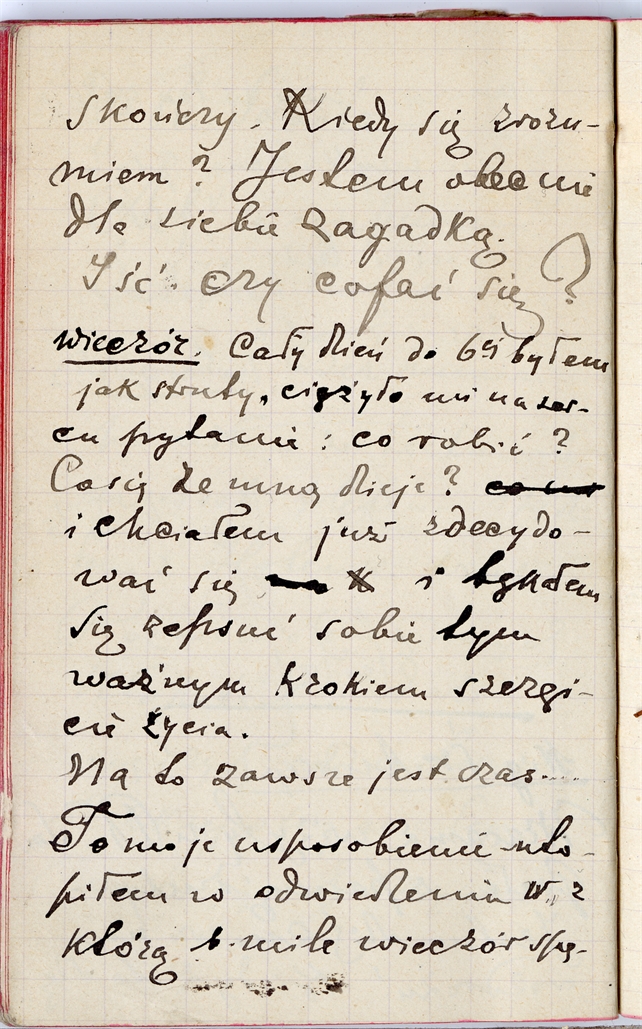 skończy. Kiedy się zrozu-
miem? Jestem obecnie
dla siebie zagadką.
Iść czy cofać się?
wieczór. Cały dzień do 6ej byłem
jak struty, ciążyło mi na ser-
cu pytanie: co robić?
Co się ze mną dzieje? co mi
i chciałem już zdecydo-
wać się i lękałem
się zepsuć sobie tym
ważnym krokiem szczęś-
cie życia.
Na to zawsze jest czas....
To moje usposobienie uto-
piłem w odwiedzeniu W. z
którą b. mile wieczór spę-